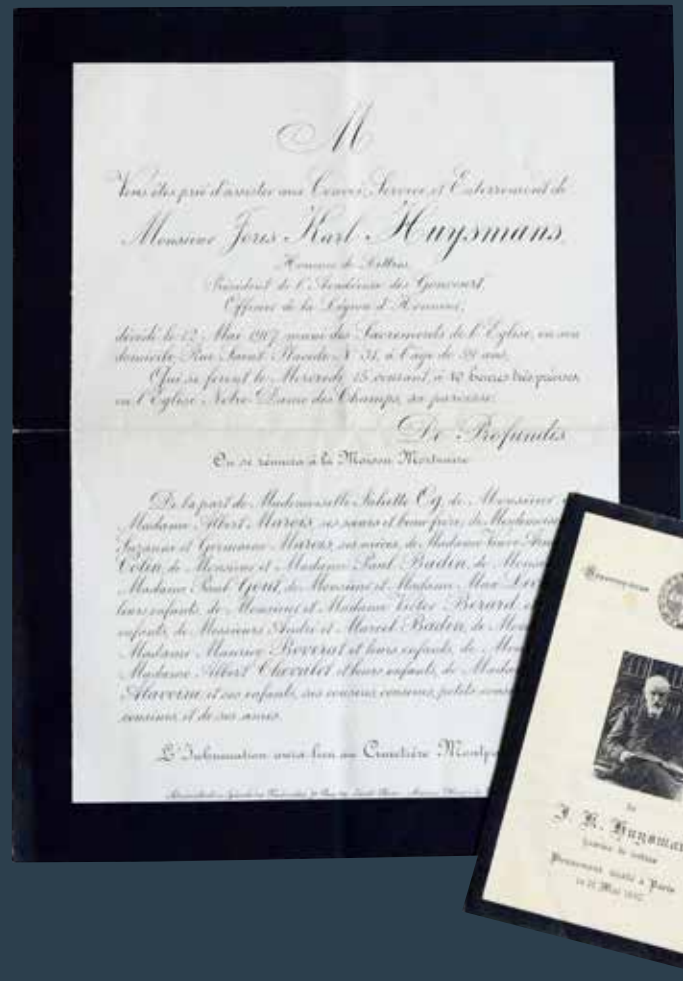 M
Vous êtes prié d'assister aux Convoi, Service et Enterrement de
Monsieur Joris Karl Huysmans,
Homme de Lettres,
Président de l'Académie des Goncourt,
Officier de la Légion d'Honneur,
décédé le 12 Mai 1907, muni des Sacrements de l'Eglise, en son
domicile, Rue Saint Placide, N° 31, à l'âge de 59 ans,
Qui se feront le Mercredi 15 courant, à 10 heures très précises,
en l'Eglise Notre-Dame des Champs, sa paroisse.
De Profundis
On se réunira à la Maison Mortuaire
De la part de Mademoiselle Juliette Og, de Monsieur
Madame Albert Marois, ses sœurs et beau frère, de
Suzanne et Germaine Marois, ses nièces, de Madame Veuve
Colin, de Monsieur et Madame Paul Badin, de
Madame Paul Gout, de Monsieur et Madame Max
leurs enfants, de Monsieur et Madame Victor Berard,
enfants, de Messieurs André et Marcel Badin, de
Madame Maurice Boverat et leurs enfants, de
Madame Albert Chevalet et leurs enfants, de
Alavoine et ses enfants, ses cousins, cousines, petits
cousines, et de ses amis.
L'Inhumation aura lieu au Cimetière
Souvenez-vous
de
J. K. Huysma
homme de lettres
Pieusement décédé à Paris
le 12 Mai 1907